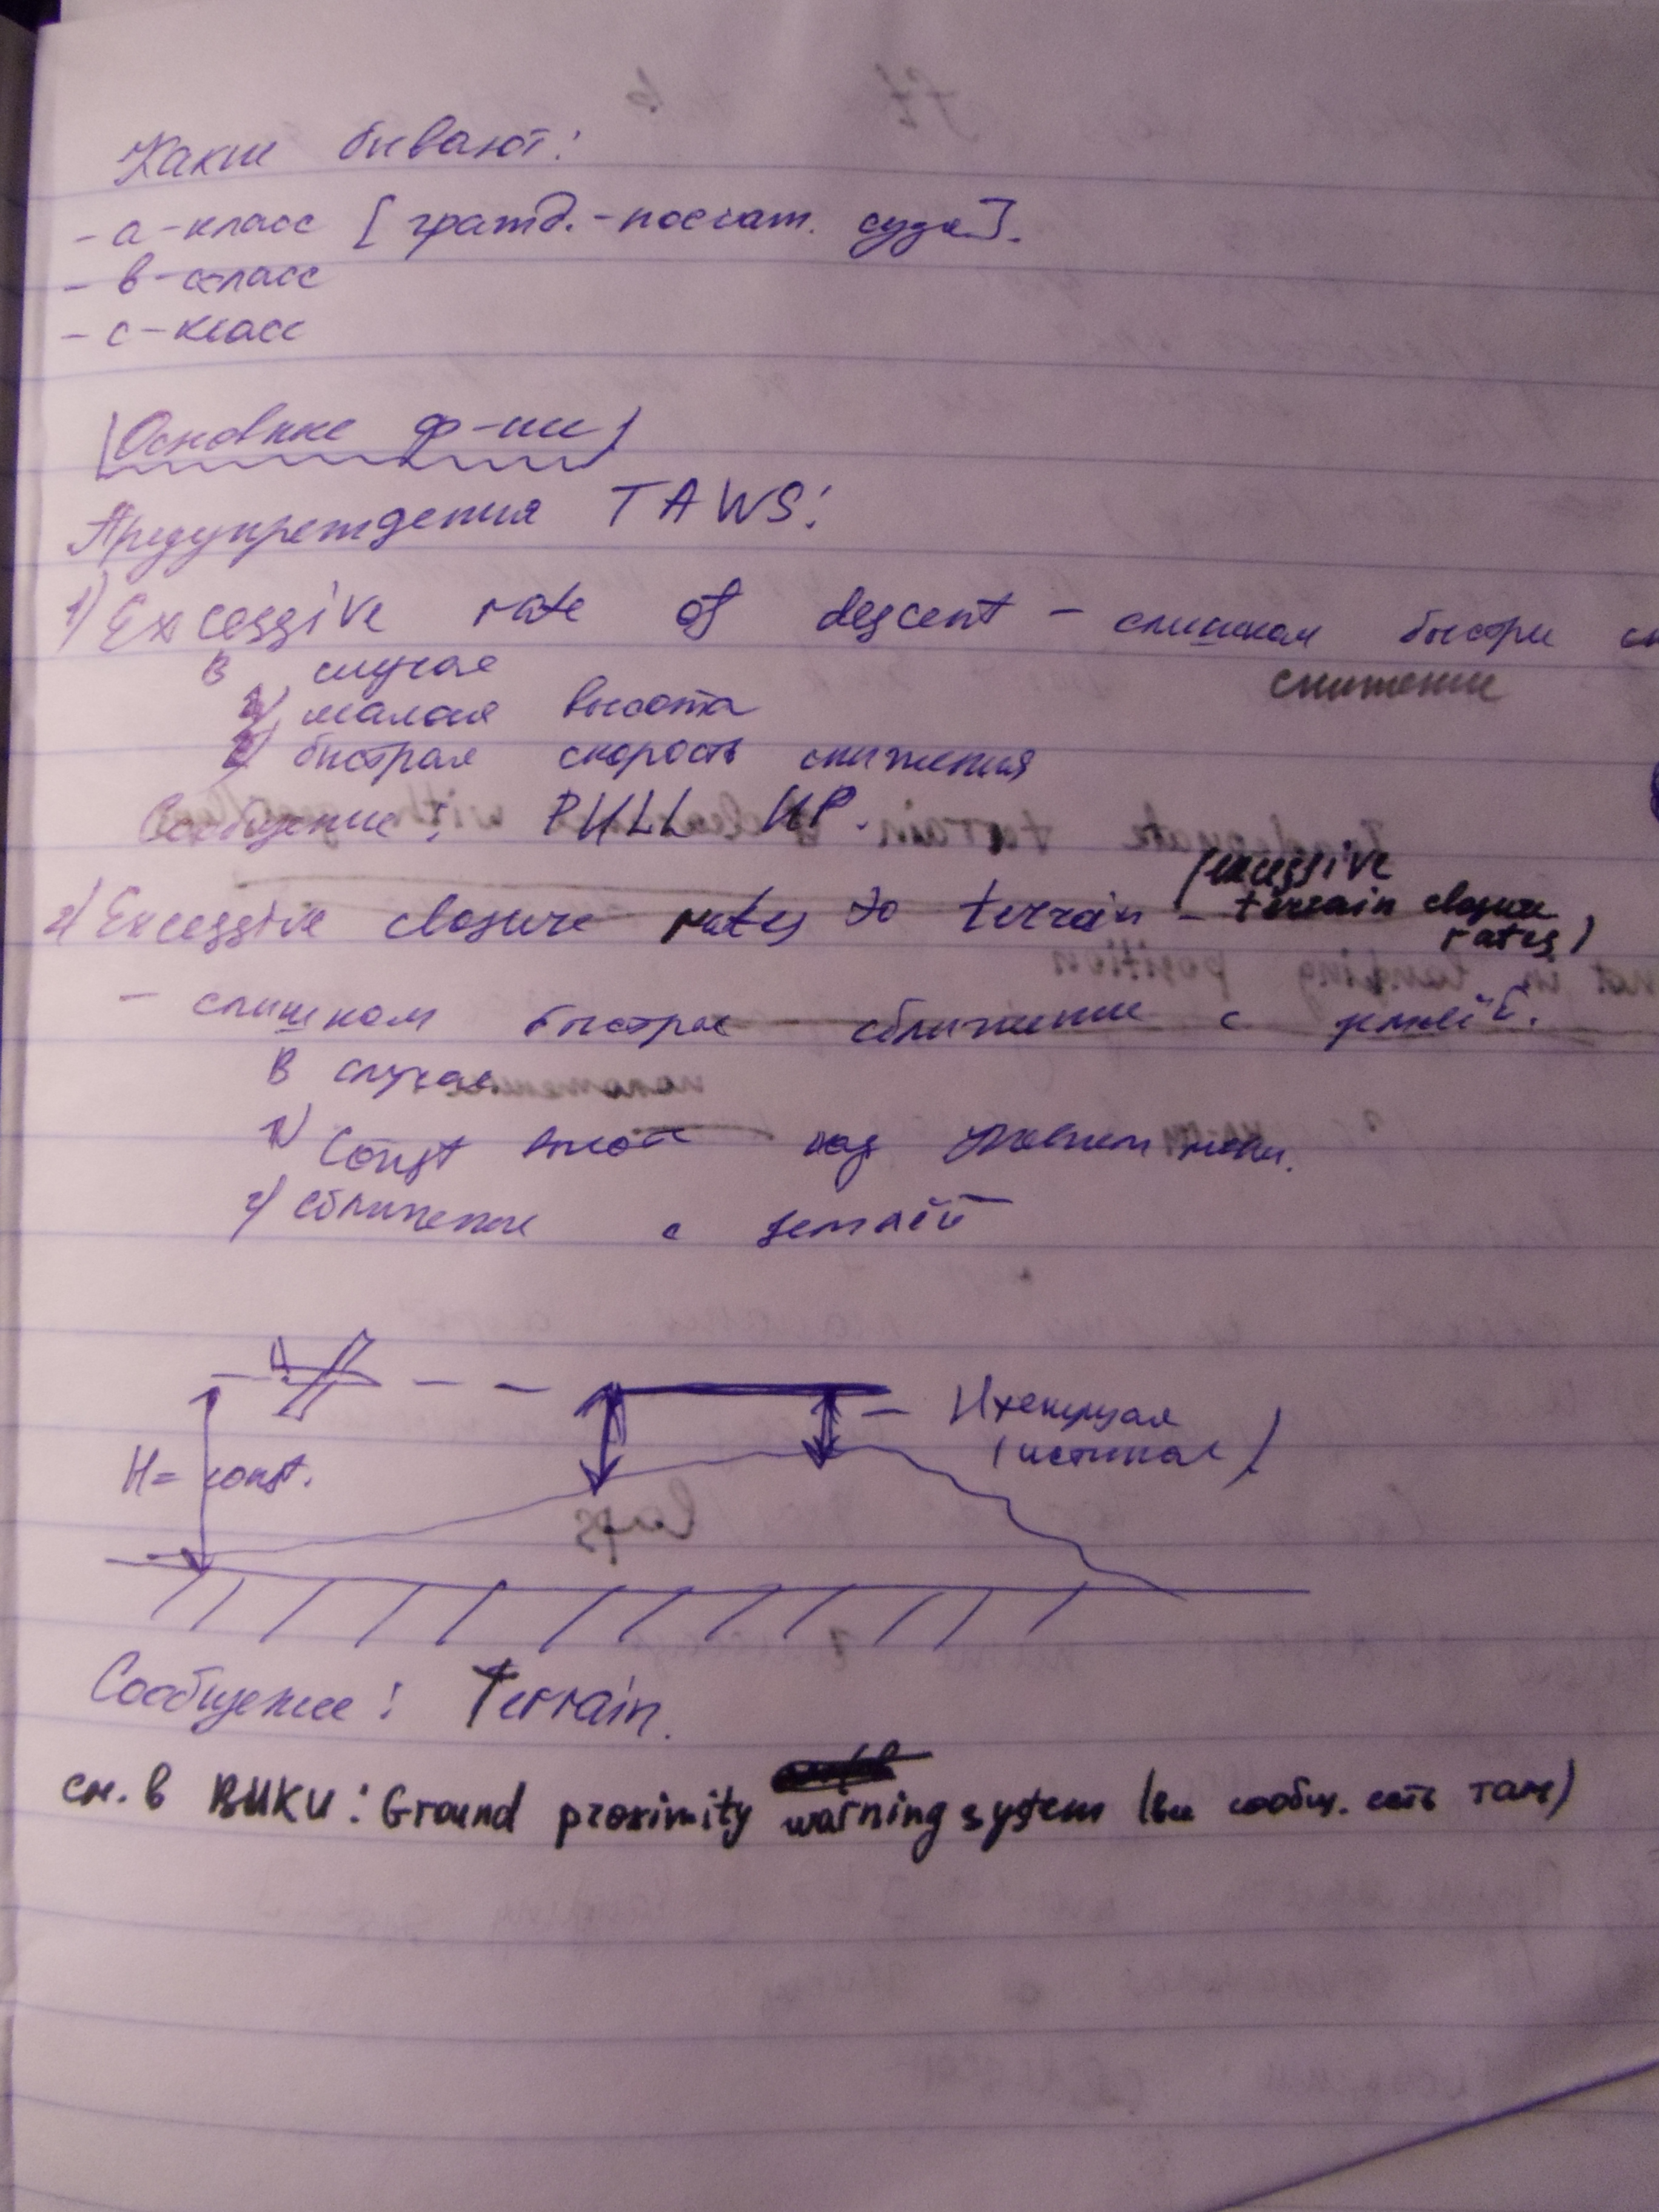 Какие бывают:
- а-класс [гражд.-пассаж. суда].
- в-класс
- с-класс
Основные ф-ии
Предупреждения TAWS:
1) Excessive rate of descent - слишком быстрый
снижение
В случае
1) малая высота
2) быстрая скорость снижения
Сообщение: PULL UP.
2) Excessive closure rates to terrain - (excessive
terrain closure
rates)
- слишком быстрое сближение с землёй.
В случае
1) Const высота над уровнем моря.
2) сближение с землёй
H = const.
Hтекущая
(истиная)
Сообщение: Terrain.
см. в ВИКИ: Ground proximity warning system (все сообщ. есть там)